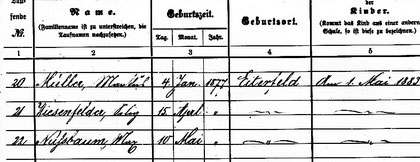 fende
№.
Name.
(Familienname ist zu unterstreichen, die
Taufnamen nachzusetzen.)
Geburtszeit.
Tag. Monat. Jahr.
Geburtsort.
der
Kinder.
(Kommt das Kind aus einer andern
Schule, so ist diese zu bezeichnen.)
1 2 3 4 5
20 Müller, 4 Jan. 1877 Eiterfeld den 1. Mai 1883
21 Ziesenfelder, 15 April "
22 Nußbaum, Max 10 Mai "